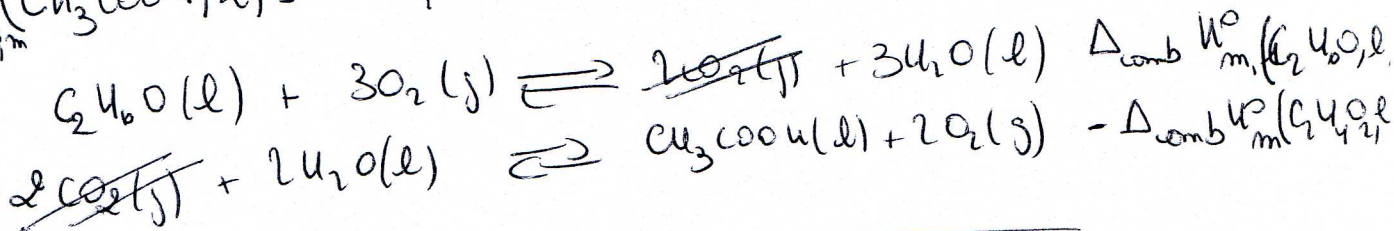 (CH₃COO
m
C₂H₆O(l) + 3O₂(g) ⇌ 2CO₂(g) + 3H₂O(l) Δcomb H°m,(C₂H₆O,l
2CO₂(g) + 2H₂O(l) ⇌ CH₃COOH(l) + 2O₂(g) - Δcomb H°m(C₂H₄O₂,l